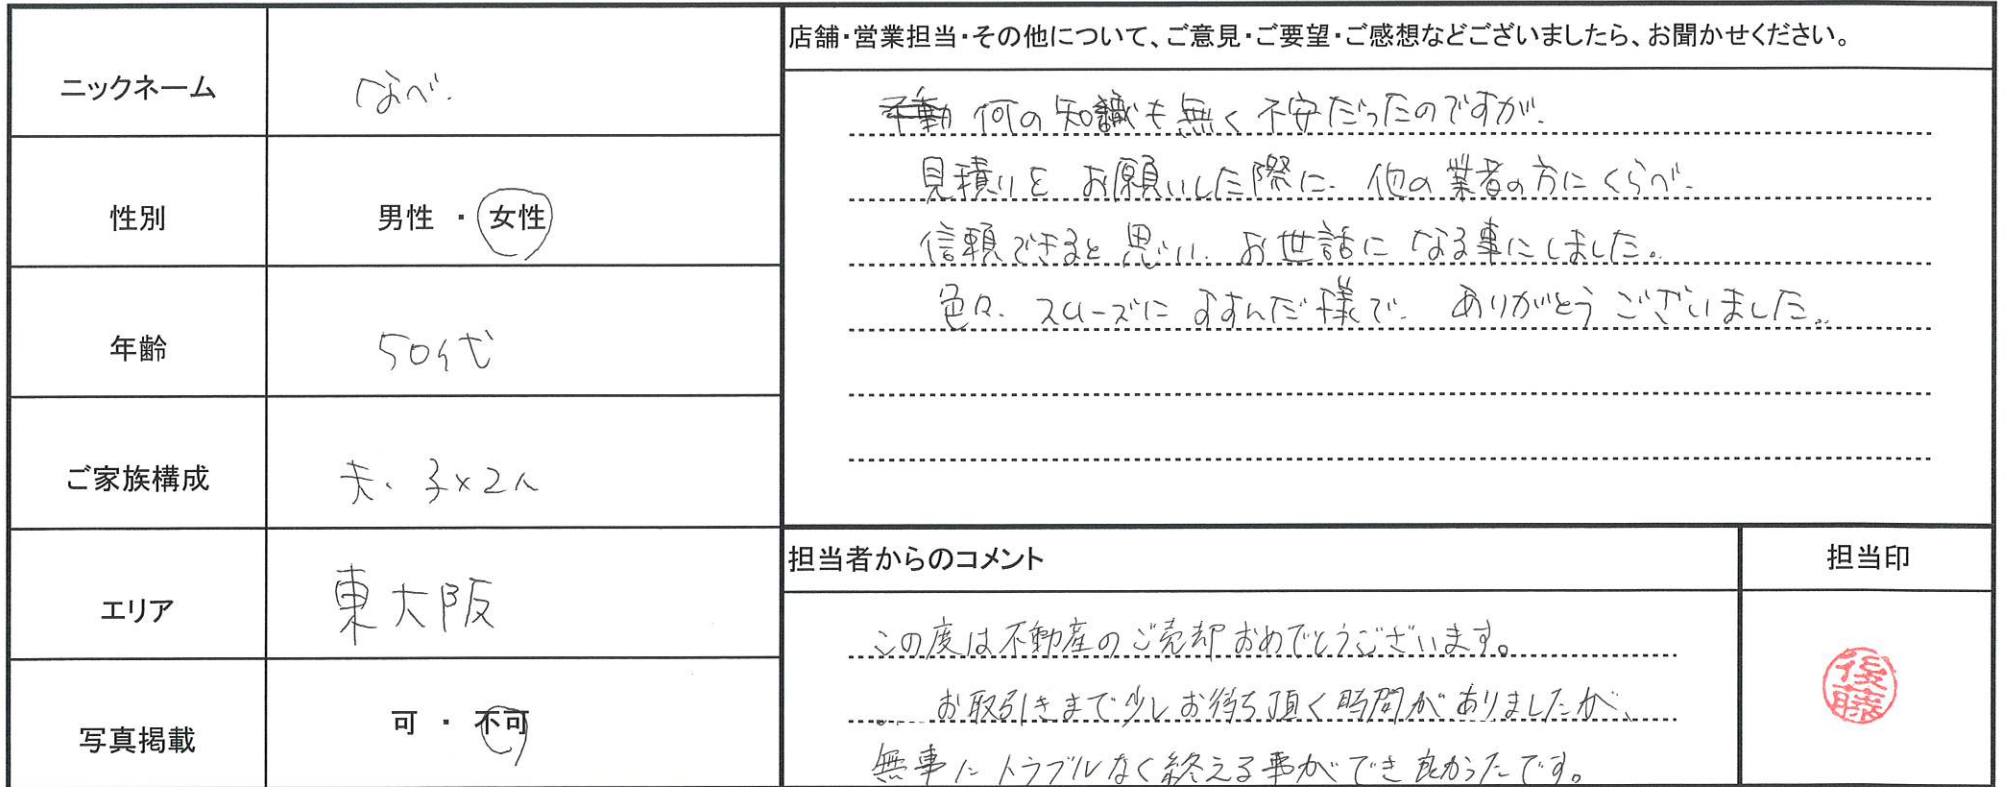 ニックネーム
なべ.
性別
男性 ・ 女性
年齢
50代
ご家族構成
夫、子×2人
エリア
東大阪
写真掲載
可 ・ 不可
店舗・営業担当・その他について、ご意見・ご要望・ご感想などございましたら、お聞かせください。
不動 何の知識も無く不安だったのですが、
見積りをお願いした際に、他の業者の方にくらべ、
信頼できると思い、お世話になる事にしました。
色々、スムーズにすすんだ様で、ありがとうございました。
担当者からのコメント
この度は不動産のご売却おめでとうございます。
お取引きまで少しお待ち頂く時間がありましたが、
無事にトラブルなく終える事ができ良かったです。
担当印
後藤